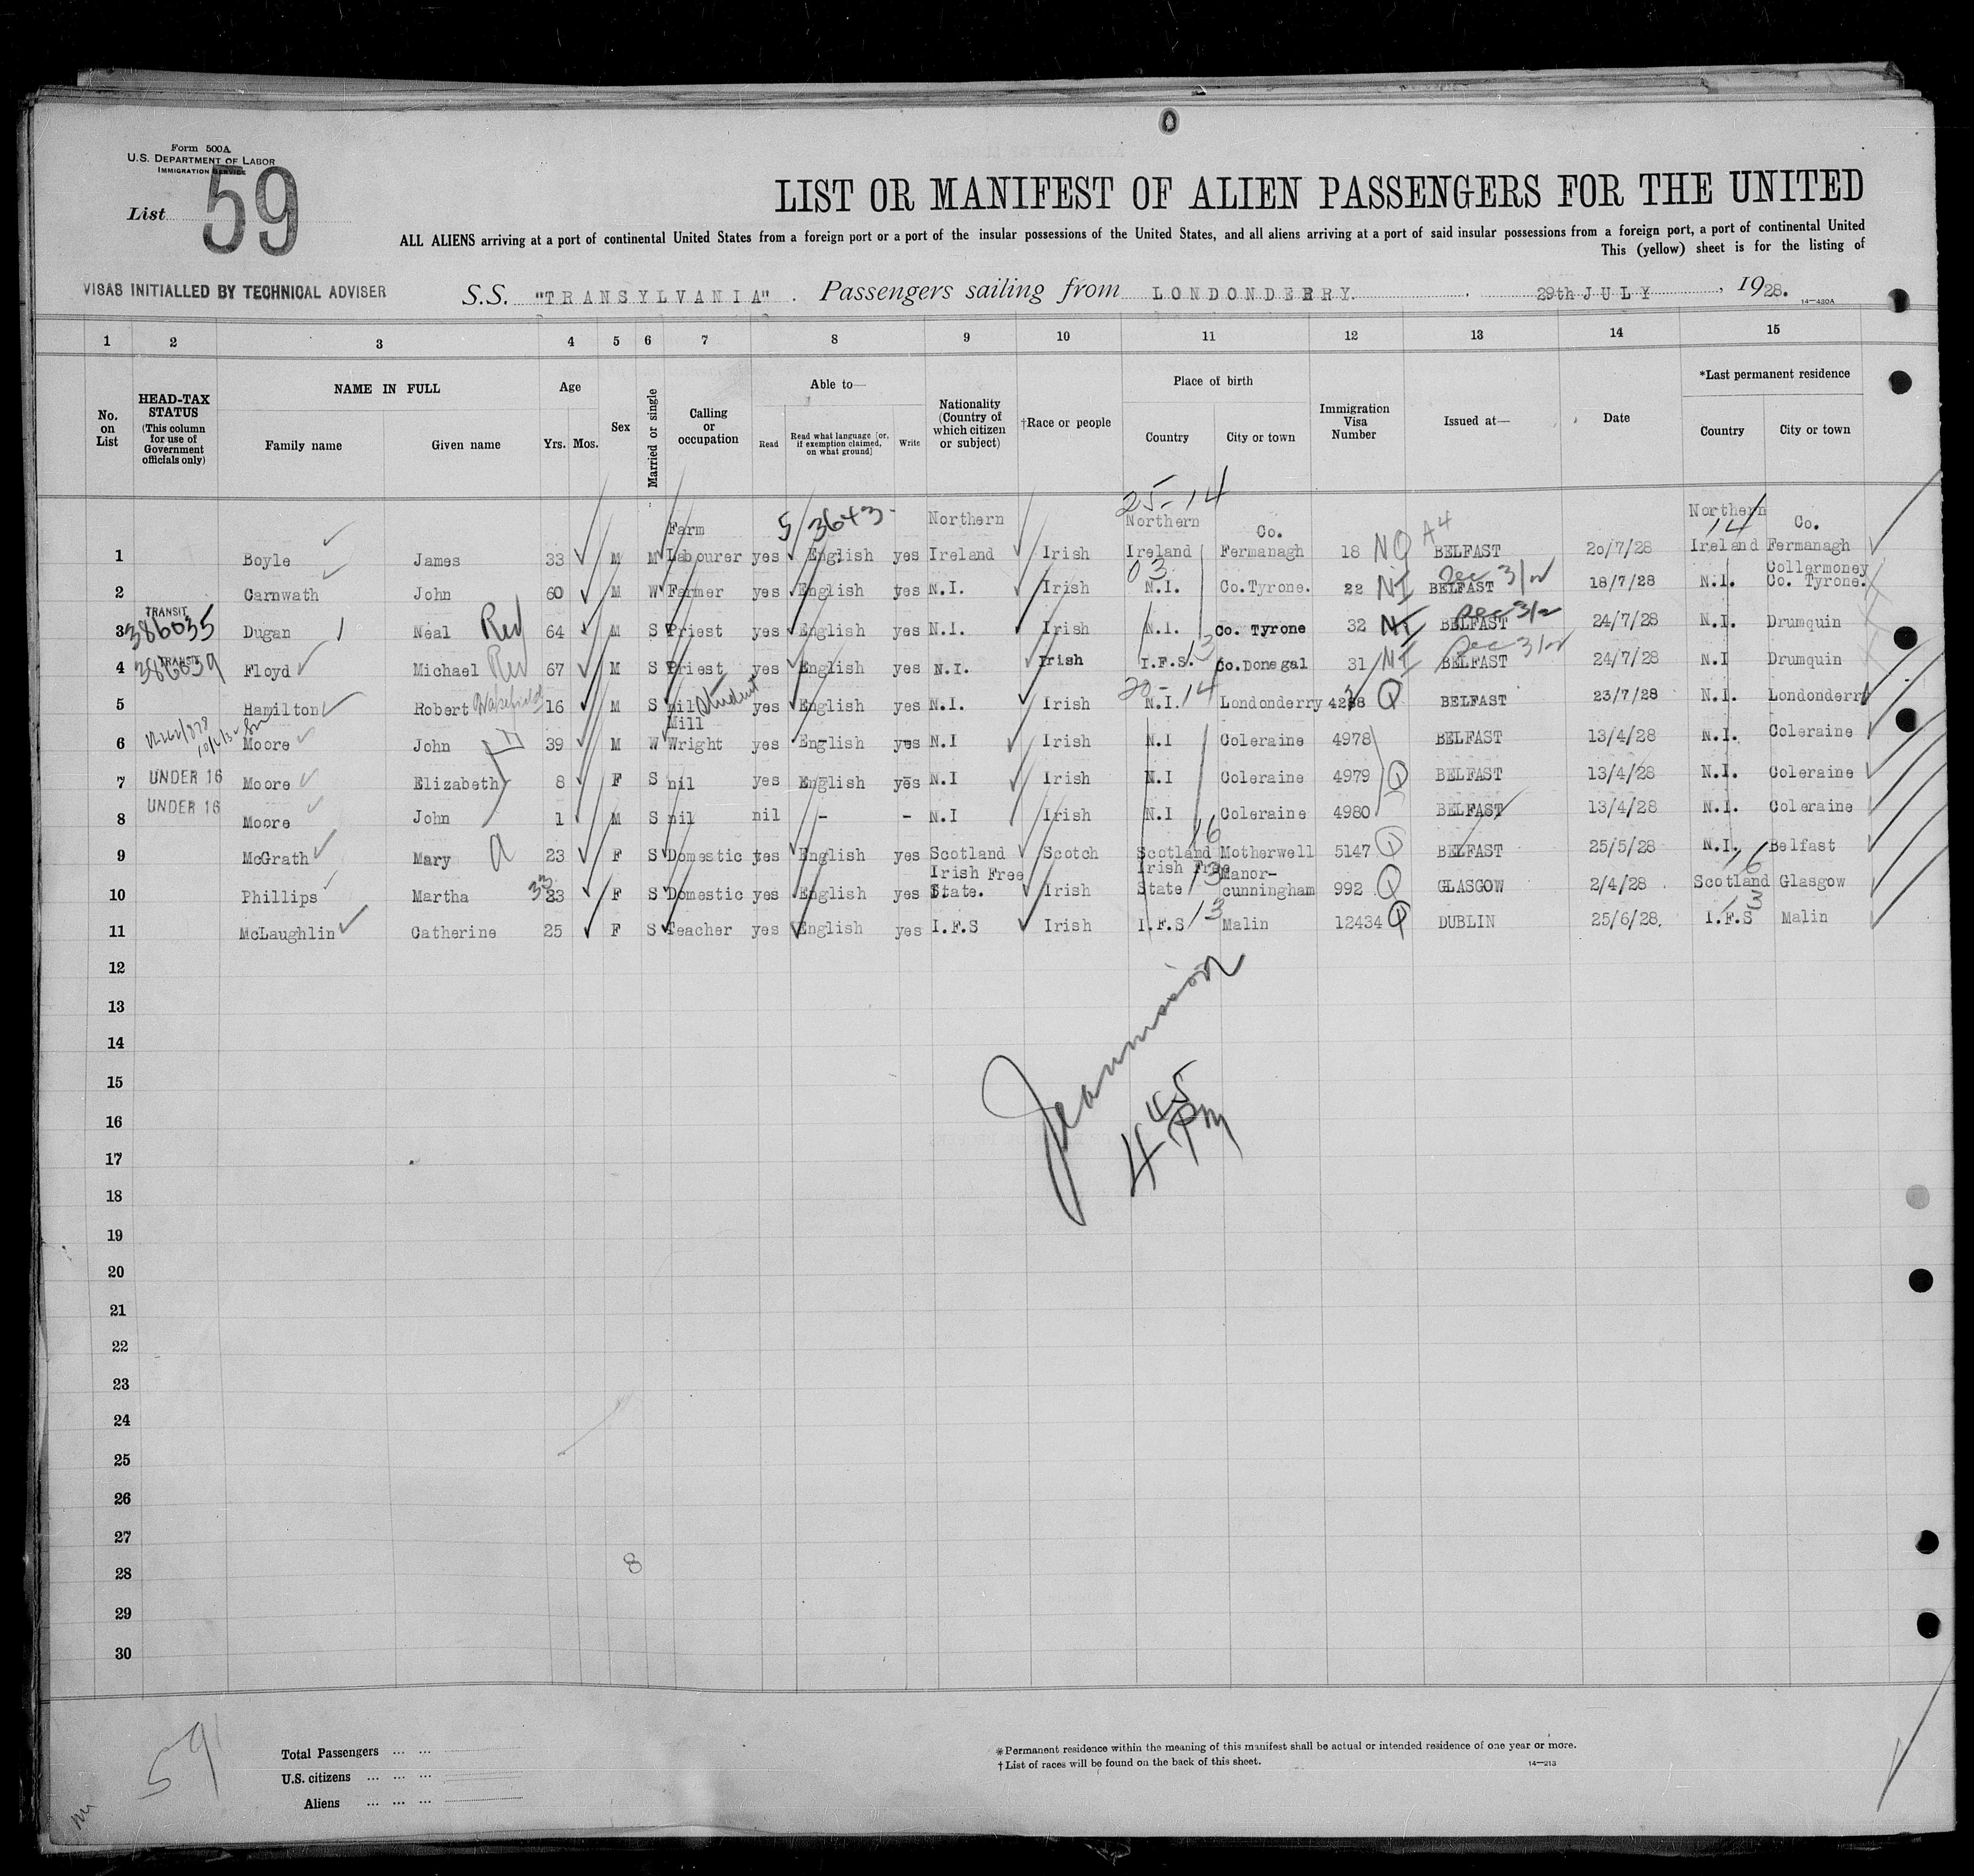 0
Form 500A
U.S. DEPARTMENT OF LABOR
IMMIGRATION SERVICE
List 59
LIST OR MANIFEST OF ALIEN PASSENGERS FOR THE UNITED
ALL ALIENS arriving at a port of continental United States from a foreign port or a port of the insular possessions of the United States, and all aliens arriving at a port of said insular possessions from a foreign port, a port of continental United
This (yellow) sheet is for the listing of
VISAS INITIALLED BY TECHNICAL ADVISER
S.S. "TRANSYLVANIA". Passengers sailing from LONDONDERRY. 29th JULY, 1928.
14—430A
1 2 3 4 5 6 7 8 9 10 11 12 13 14 15
No. on List
HEAD-TAX STATUS (This column for use of Government officials only)
NAME IN FULL
Family name Given name
Age
Yrs. Mos.
Sex
Married or single
Calling or occupation
Able to—
Read Read what language [or, if exemption claimed, on what ground] Write
Nationality (Country of which citizen or subject)
†Race or people
Place of birth
Country City or town
Immigration Visa Number
Issued at—
Date
*Last permanent residence
Country City or town
25-14
5/3643-
1 Boyle James 33 M M Farm Labourer yes English yes Northern Ireland Irish Northern Ireland Co. Fermanagh 18 NQ A4 BELFAST 20/7/28 Northern Ireland 14 Co. Fermanagh
2 Carnwath John 60 M W Farmer yes English yes N.I. Irish 03 N.I. Co.Tyrone. 22 NI Sec 3/2 BELFAST 18/7/28 N.I. Collermoney Co. Tyrone.
3 TRANSIT 386035 Dugan Neal Rev 64 M S Priest yes English yes N.I. Irish N.I. Co. Tyrone 32 NI Sec 3/2 BELFAST 24/7/28 N.I. Drumquin
4 TRANSIT 386039 Floyd Michael Rev 67 M S Priest yes English yes N.I. Irish I.F.S. 13 Co.Donegal 31 NI Sec 3/2 BELFAST 24/7/28 N.I Drumquin
5 Hamilton Robert Wakefield 16 M S nil Student yes English yes N.I. Irish 20-14 N.I. Londonderry 4288 Q BELFAST 23/7/28 N.I. Londonderry
6 Moore John 39 M W Mill Wright yes English yes N.I Irish N.I Coleraine 4978 BELFAST 13/4/28 N.I. Coleraine
7 UNDER 16 Moore Elizabeth 8 F S nil yes English yes N.I Irish N.I Coleraine 4979 Q BELFAST 13/4/28 N.I. Coleraine
8 UNDER 16 Moore John 1 M S nil nil - - N.I Irish N.I Coleraine 4980 BELFAST 13/4/28 N.I. Coleraine
9 McGrath Mary a 23 F S Domestic yes English yes Scotland Scotch Scotland 16 Motherwell 5147 Q BELFAST 25/5/28 N.I. Belfast
10 Phillips Martha 33 23 F S Domestic yes English yes Irish Free State. Irish Irish Free State 13 Manor-cunningham 992 Q GLASGOW 2/4/28 Scotland 16 Glasgow
11 McLaughlin Catherine 25 F S Teacher yes English yes I.F.S Irish I.F.S 13 Malin 12434 Q DUBLIN 25/6/28. I.F.S 13 Malin
12
13
14
15
16
17
18
19
20
21
22
23
24
25
26
27
28
29
30
4 45 PM
8
59
Total Passengers ... ...
U.S. citizens ... ... ...
Aliens ... ... ...
*Permanent residence within the meaning of this manifest shall be actual or intended residence of one year or more.
†List of races will be found on the back of this sheet.
14—213